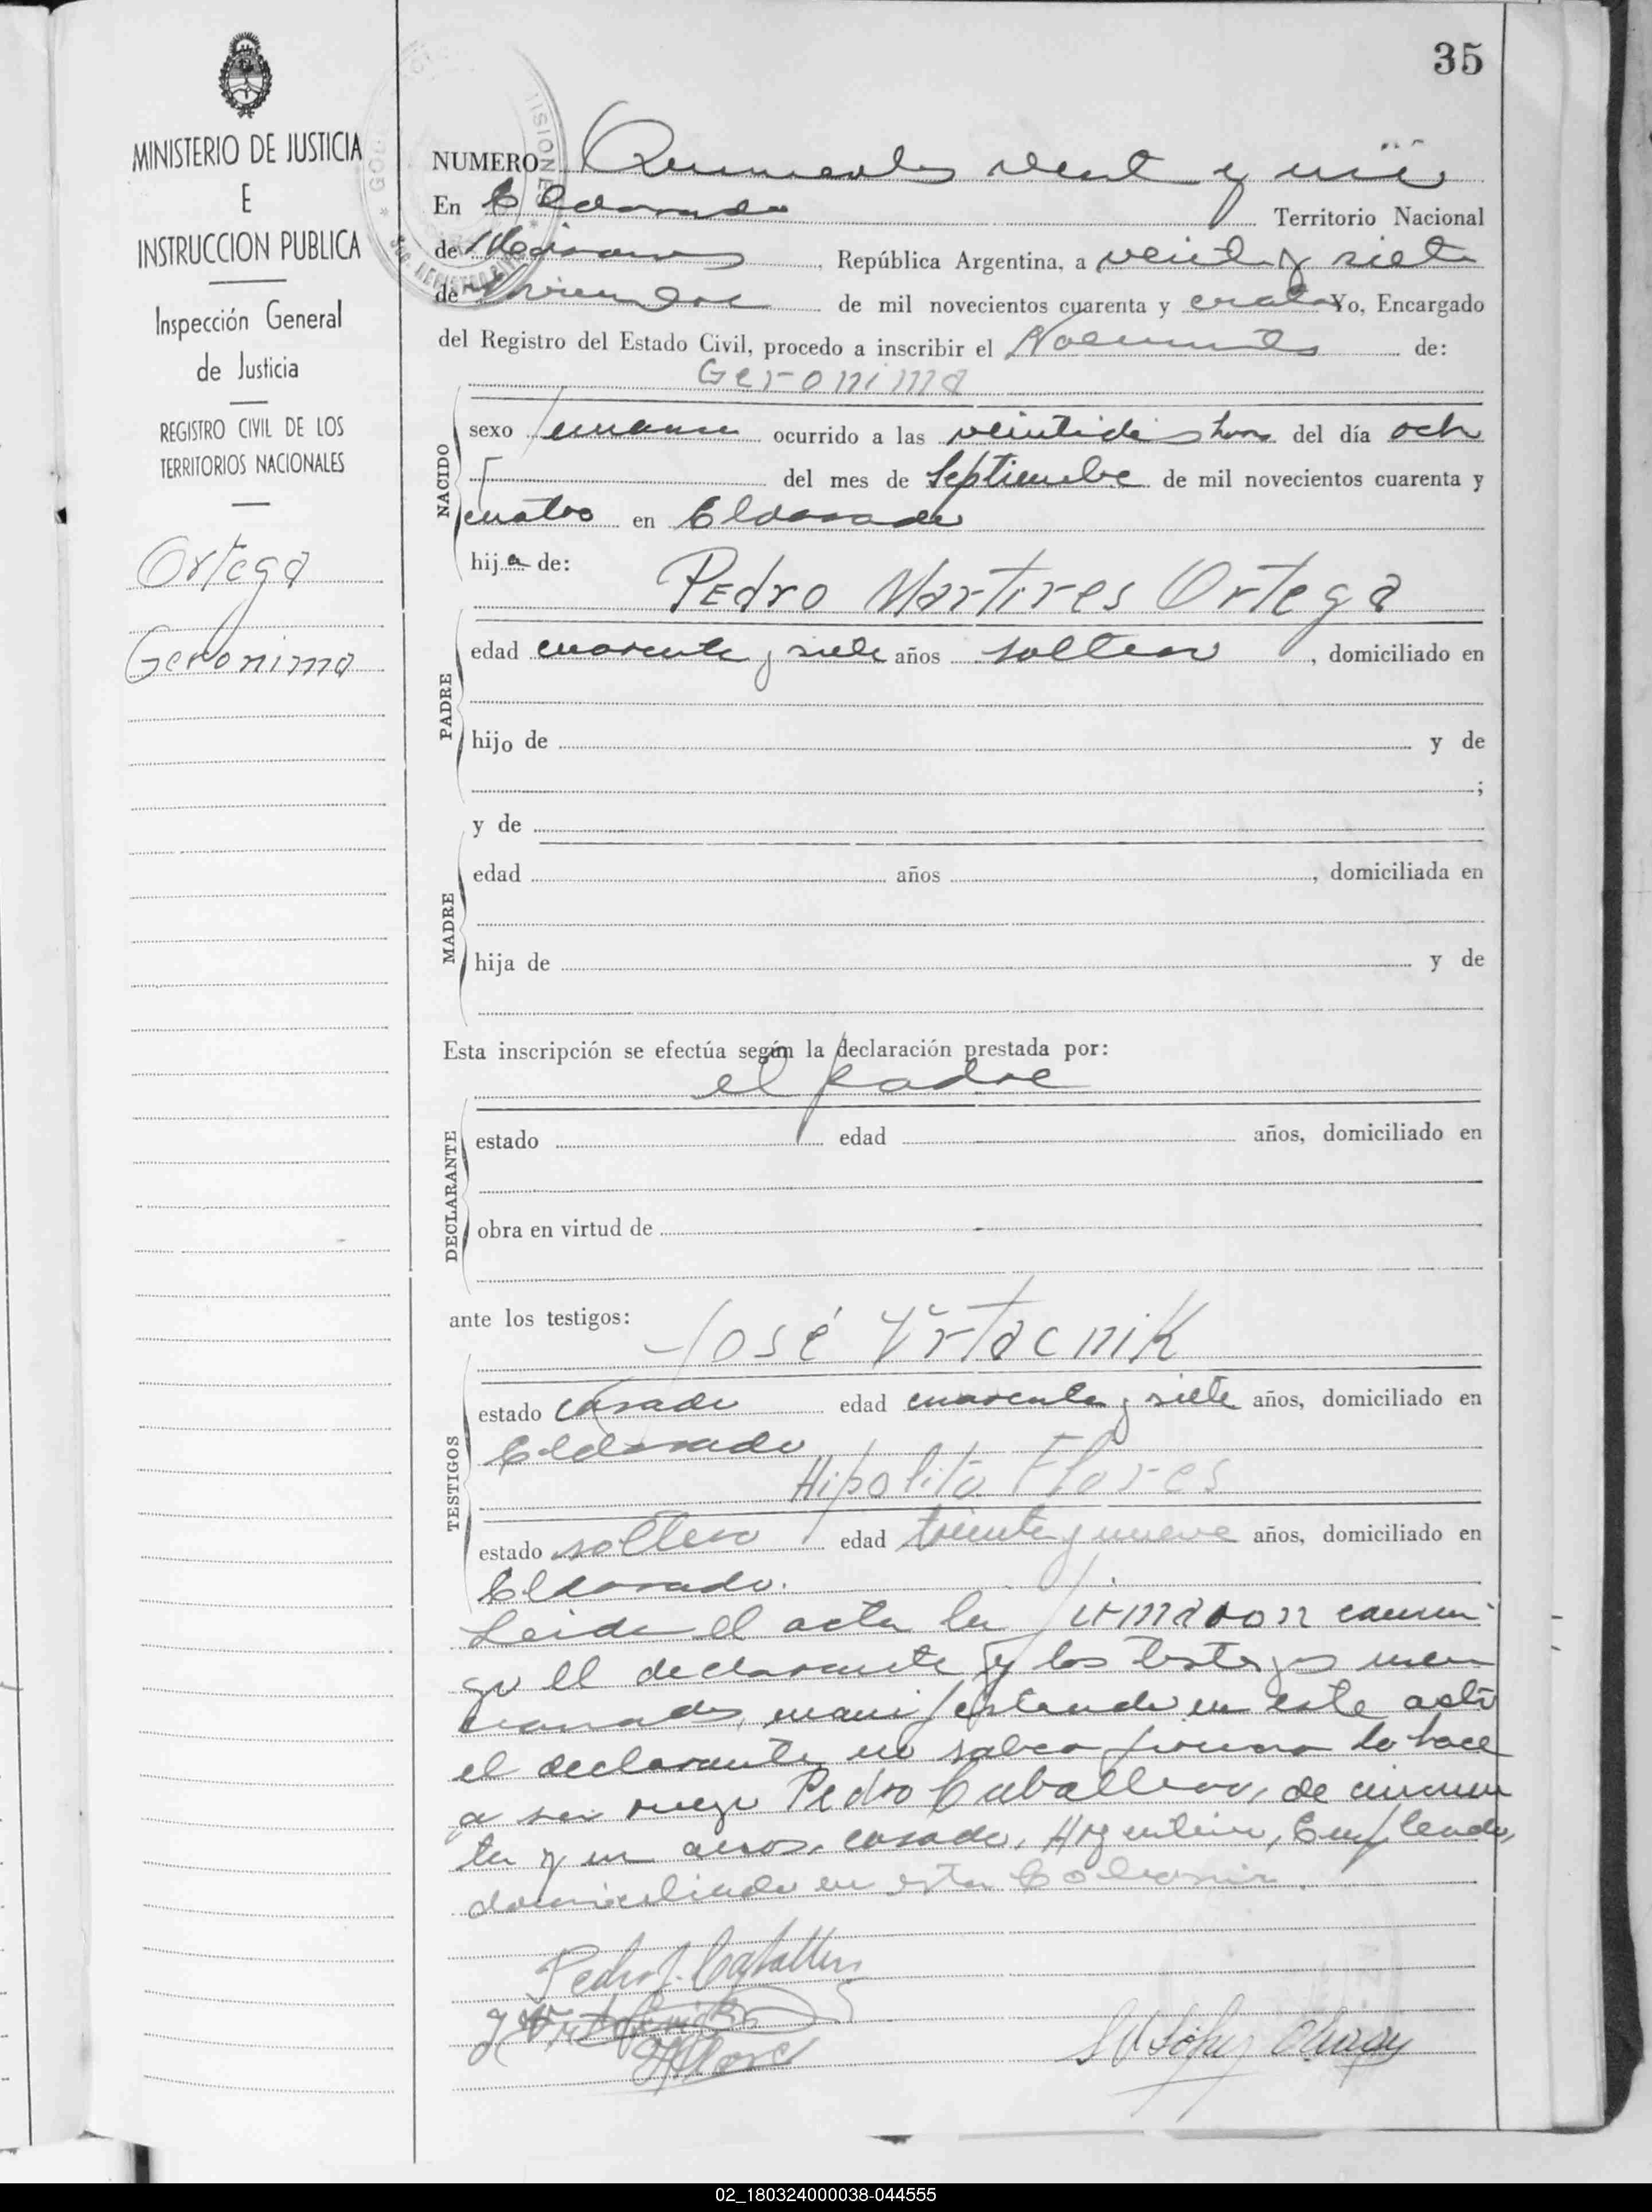 35
MINISTERIO DE JUSTICIA
E
INSTRUCCION PUBLICA
Inspección General
de Justicia
REGISTRO CIVIL DE LOS
TERRITORIOS NACIONALES
Ortega
Geronima
NUMERO y un
En Eldorado Territorio Nacional
de Misiones República Argentina, a veinte y siete
de Noviembre de mil novecientos cuarenta y cuatro Yo, Encargado
del Registro del Estado Civil, procedo a inscribir el Nacimiento de:
Geronima
NACIDO
sexo femenino ocurrido a las veintidos horas del día ocho
del mes de Septiembre de mil novecientos cuarenta y
cuatro en Eldorado
hija de:
Pedro Martires Ortega
PADRE
edad cuarenta y siete años soltero, domiciliado en
hijo de y de
;
y de
MADRE
edad años , domiciliada en
hija de y de
Esta inscripción se efectúa según la declaración prestada por:
el padre
DECLARANTE
estado edad años, domiciliado en
obra en virtud de
ante los testigos:
José Vrtacnik
TESTIGOS
estado casado edad cuarenta y siete años, domiciliado en
Eldorado
Hipolito Flores
estado soltero edad treinta y nueve años, domiciliado en
Eldorado.
Leida el acta la firmaron conmi
go el declarante y los testigos men
cionados, manifestando en este acto
el declarante no saber firmar lo hace
a su ruego Pedro Caballero, de cincuen
ta y un años, casado, Argentino, Empleado,
domiciliado en esta Colonia.
Pedro J. Caballero
02_180324000038-044555